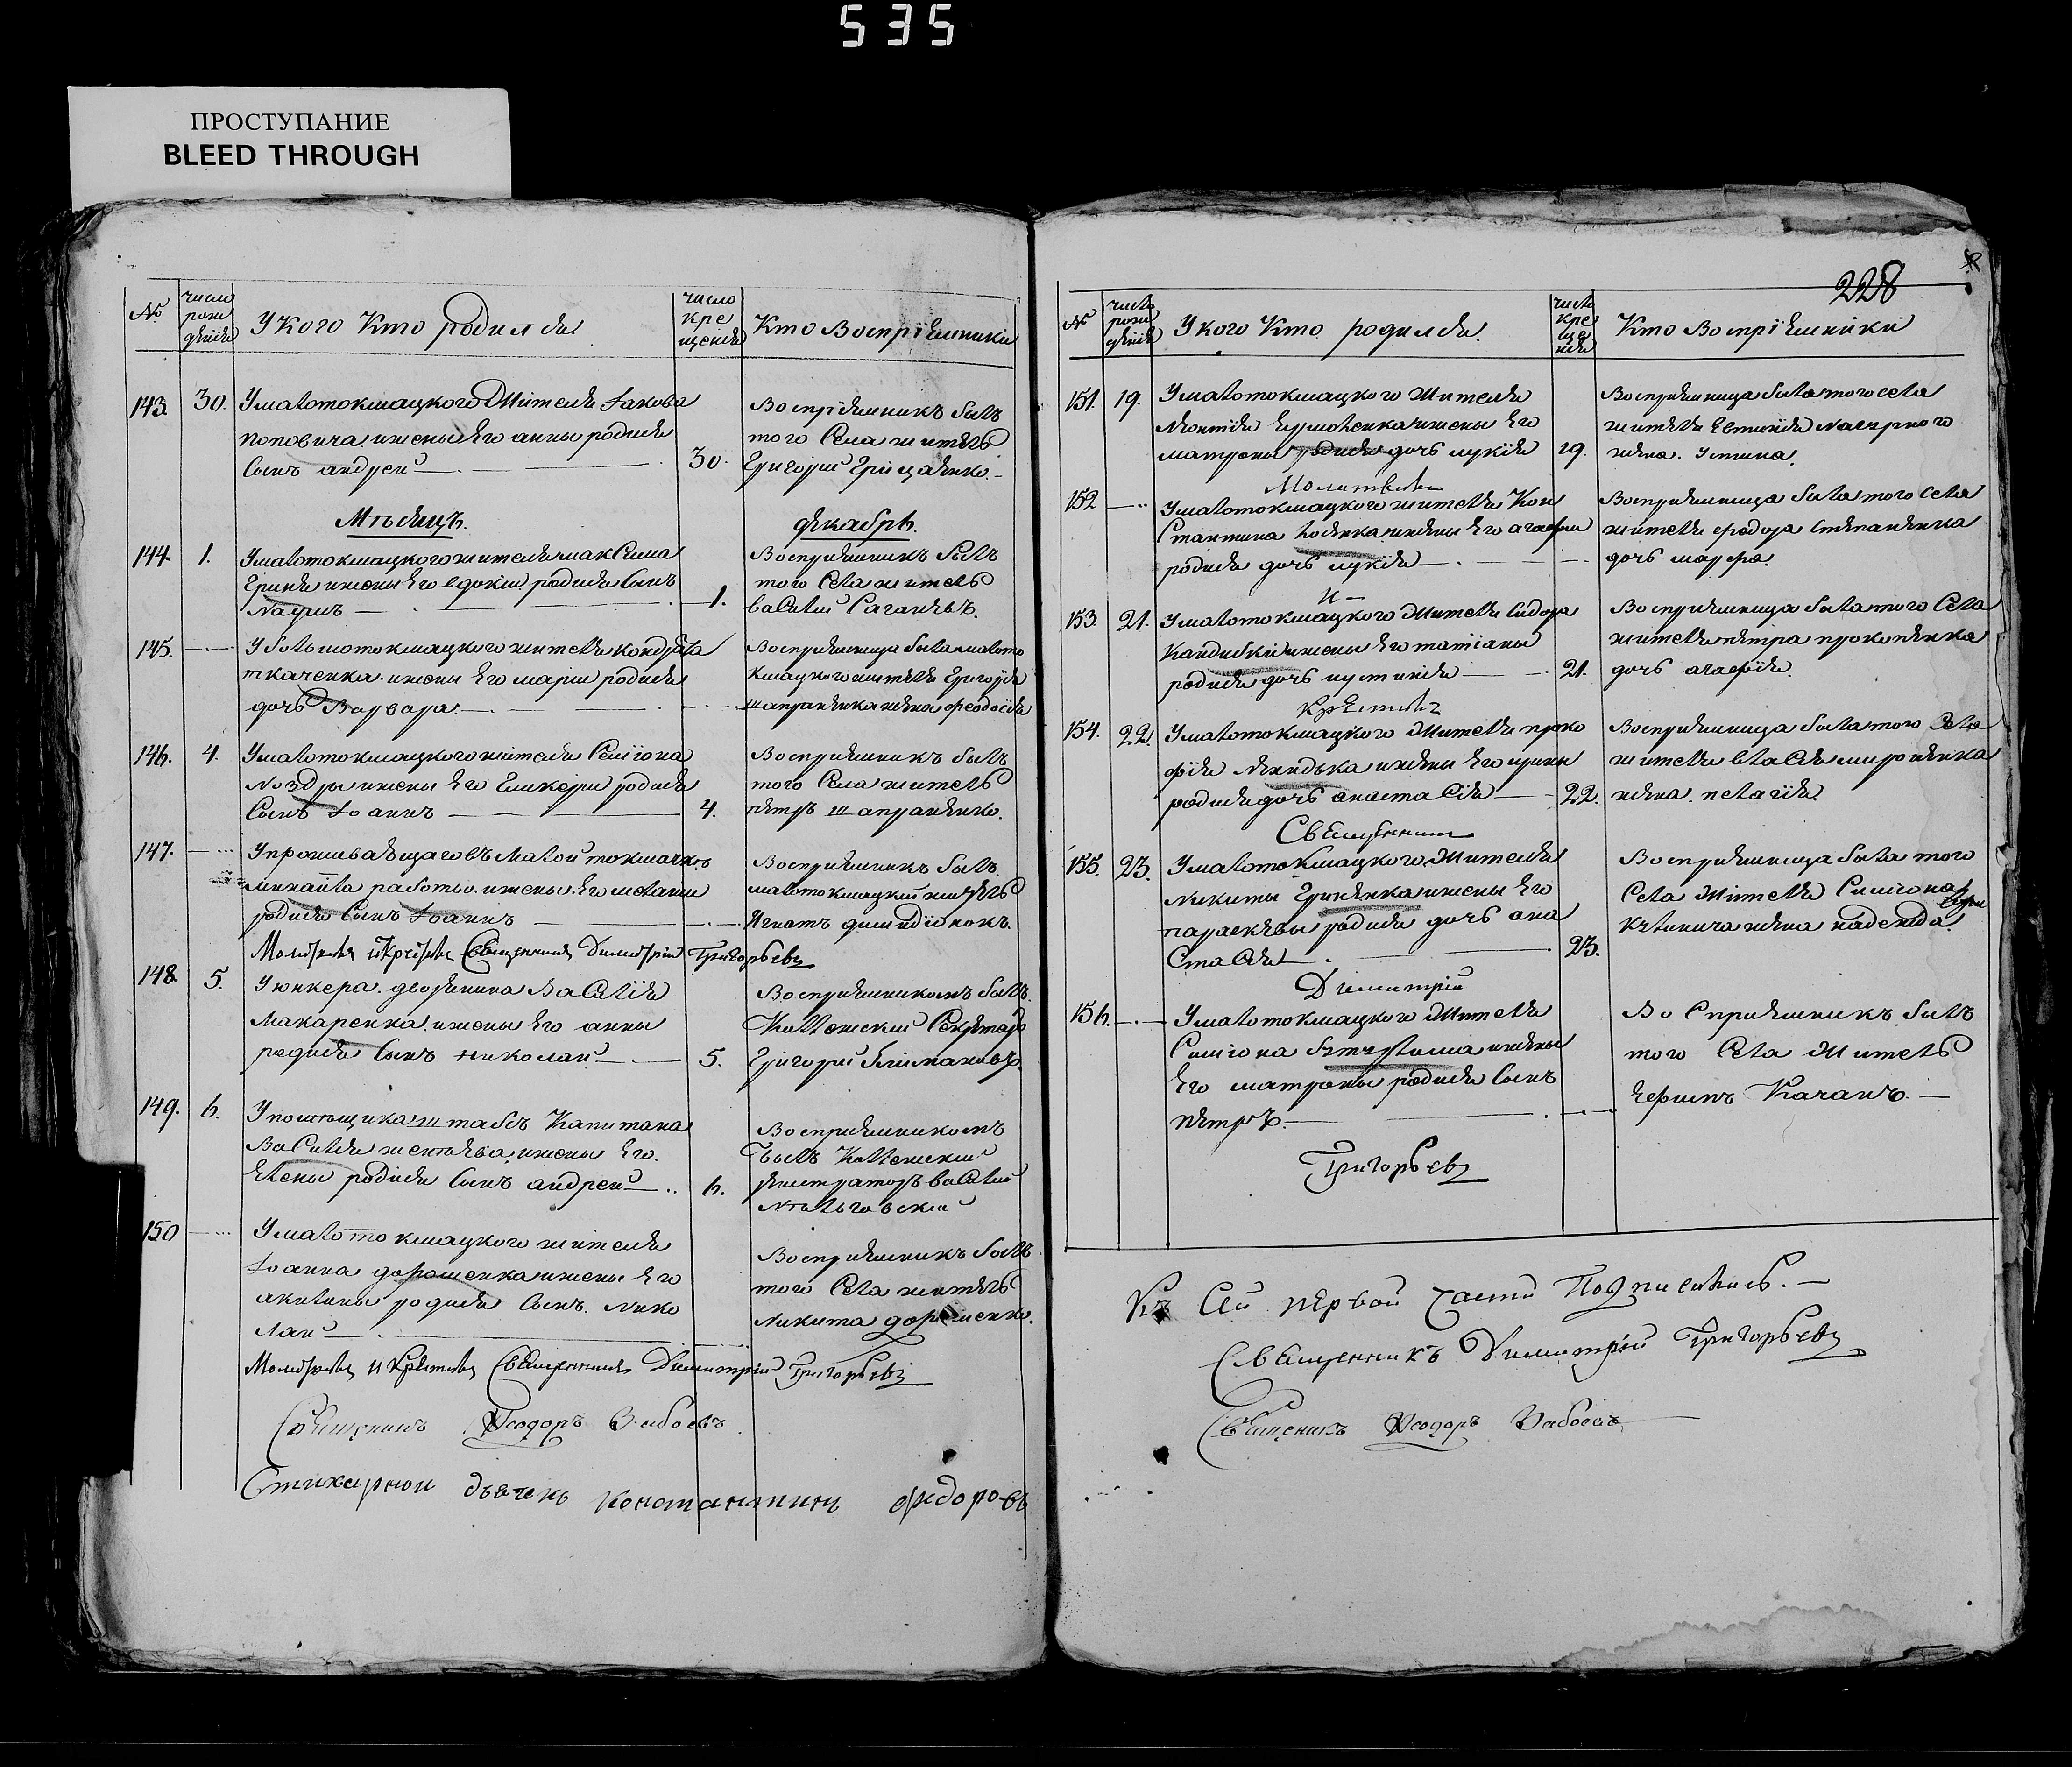 535
ПРОСТУПАНИЕ
BLEED THROUGH
№ число рождения У кого кто родился число крещения Кто восприемники
143. 30. У малотокмацкого жителя Iакова
Поповича и жены его анны родился
сынъ андрей 30.
Воспрiемникъ былъ
того села житель
Григорiй Грицаенко.
Месяцъ декабрь.
144. 1. У малотокмацкого жителя максима
Гриня и жены его евдокiи родился сынъ
Наумъ 1.
Восприемникъ былъ
того села житель
василiй
145. У большотокмацкого жителя кондрата
ткаченка и жены его марiи родилась
дочь Варвара.
Восприемница была малото
кмацкого жителя Григорiя
шапраненка жена феодосiя
146. 4. У малотокмацкого жителя Семiона
Ноздры и жены его Гликерiи родился
сынъ Iоаннъ 4.
Восприемникъ былъ
того села житель
петръ шапраненко.
147. У проживающаго въ малой токмачке
михаила работы и жены его меланiи
родился сынъ Iоаннъ
Восприемникъ былъ
малотокмацкий житель
Игнатъ
Молитвовал и крестил Священникъ Димитрiй Григорьевъ
148. 5. У юнкера дворянина Василiя
Макаренка и жены его анны
родился сынъ николай 5.
Восприемникомъ былъ
Коллежский Секретарь
Григорiй
149. 6. У помещика штабсъ Капитана
Василiя и жены его
Елены родился сынъ андрей 6.
Восприемникомъ
былъ Коллежский
регистраторъ василий
150 У малотокмацкого жителя
Iоанна дорошенка и жены его
акилины родился сынъ Нико
лай
Восприемникъ былъ
того села житель
Никита дорошенко.
Молитвовал и Крестил Священникъ Димитрiй Григорьевъ
Священникъ Феодоръ Забоевъ
Стихарной дьячекъ константинъ федоровъ
228
№ число рождения У кого кто родился. число крещения Кто воспрiемники
151. 19. У малотокмацкого жителя
Леонтiя Ермоленка и жены его
матроны родилась дочь лукiя 19.
Восприемница была того села
жителя Евтихiя Нагорного
жена Устина.
Молитвовал
152 У малотокмацкого жителя Кон
стантина и жены его агафiи
родилась дочь лукiя
Восприемница была того села
жителя федора степаненка
дочь марфа.
и
153. 21. У малотокмацкого жителя сидора
Кандыбки и жены его татiаны
родилась дочь иустинiя 21.
Восприемница была того села
жителя петра прокопенка
дочь агафiя.
Крестилъ
154. 22. У малотокмацкого жителя проко
фiя и жены его ирины
родилась дочь анастасiя 22.
Восприемница была того села
жителя власа мироненка
жена пелагiя.
Священникъ
155. 23. У малотокмацкого жителя
Никиты Гриненка и жены его
параскевы родилась дочь ана
стасiя 23.
Восприемница была того
села жителя Симиона
жена надежда.
Димитрiй
156. У малотокмацкого жителя
Симiона и жены
его матроны родился сынъ
петръ.
Восприемникъ былъ
того села житель
Ефимъ Качанъ.
Григорьевъ
Къ сей первой части Подписались.
Священникъ Димитрiй Григорьевъ
Священикъ Феодоръ Забоевъ